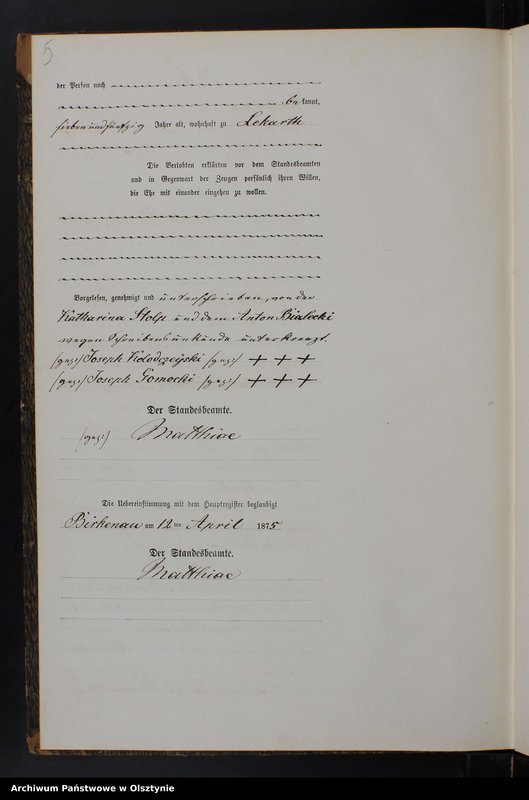 5
der Person nach
be kannt,
siebenundfünfzig Jahre alt, wohnhaft zu Lekarth
Die Verlobten erklärten vor dem Standesbeamten
und in Gegenwart der Zeugen persönlich ihren Willen,
die Ehe mit einander eingehen zu wollen.
Vorgelesen, genehmigt und unterschrieben, von der
Katharina Stolp und dem Anton Bialecki
wegen Schreibensunkunde unterkreuzt.
(gez:) Joseph Kolodzeiski (gez:) + + +
(gez:) Joseph Gomocki (gez:) + + +
Der Standesbeamte.
(gez:) Matthiae
Die Uebereinstimmung mit dem Hauptregister beglaubigt
Birkenau am 12 ten April 1875
Der Standesbeamte.
Matthiae
Archiwum Państwowe w Olsztynie